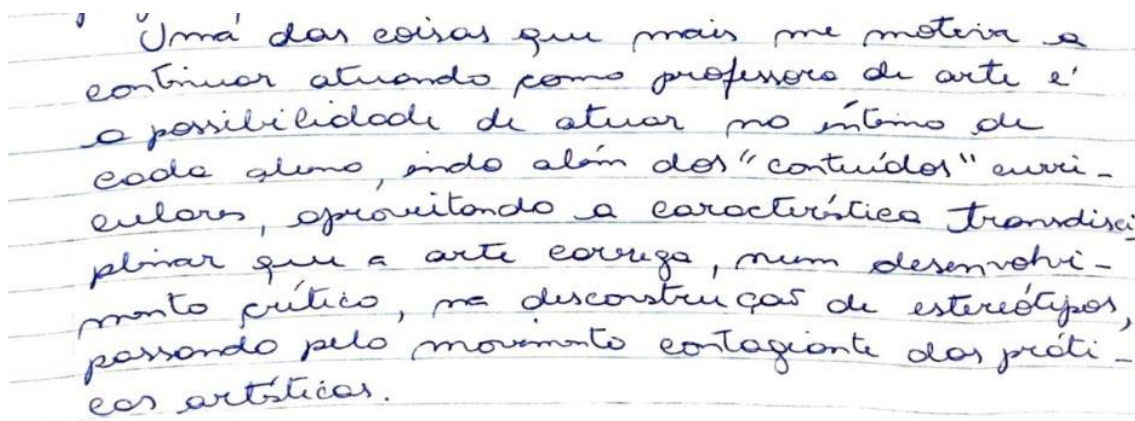 Uma das coisas que mais me motiva a
continuar atuando como professora de arte é
a possibilidade de atuar no íntimo de
cada aluno, indo além dos "contuídos" curri-
culares, aproveitando a característica transdisci
plinar que a arte carrega, num desenvolvi-
mento crítico, na desconstrução de estereótipos,
passando pelo movimento contagiante das práti-
cas artísticas.